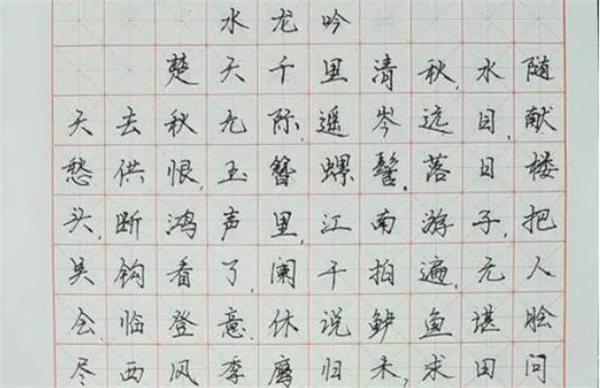 水龙吟
楚天千里清秋,水随
天去秋无际,遥岑远目,献
愁供恨,玉簪螺髻。落日楼
头,断鸿声里,江南游子,把
吴钩看了,阑干拍遍,无人
会,临登意。休说鲈鱼堪脍
尽西风季鹰归未,求田问